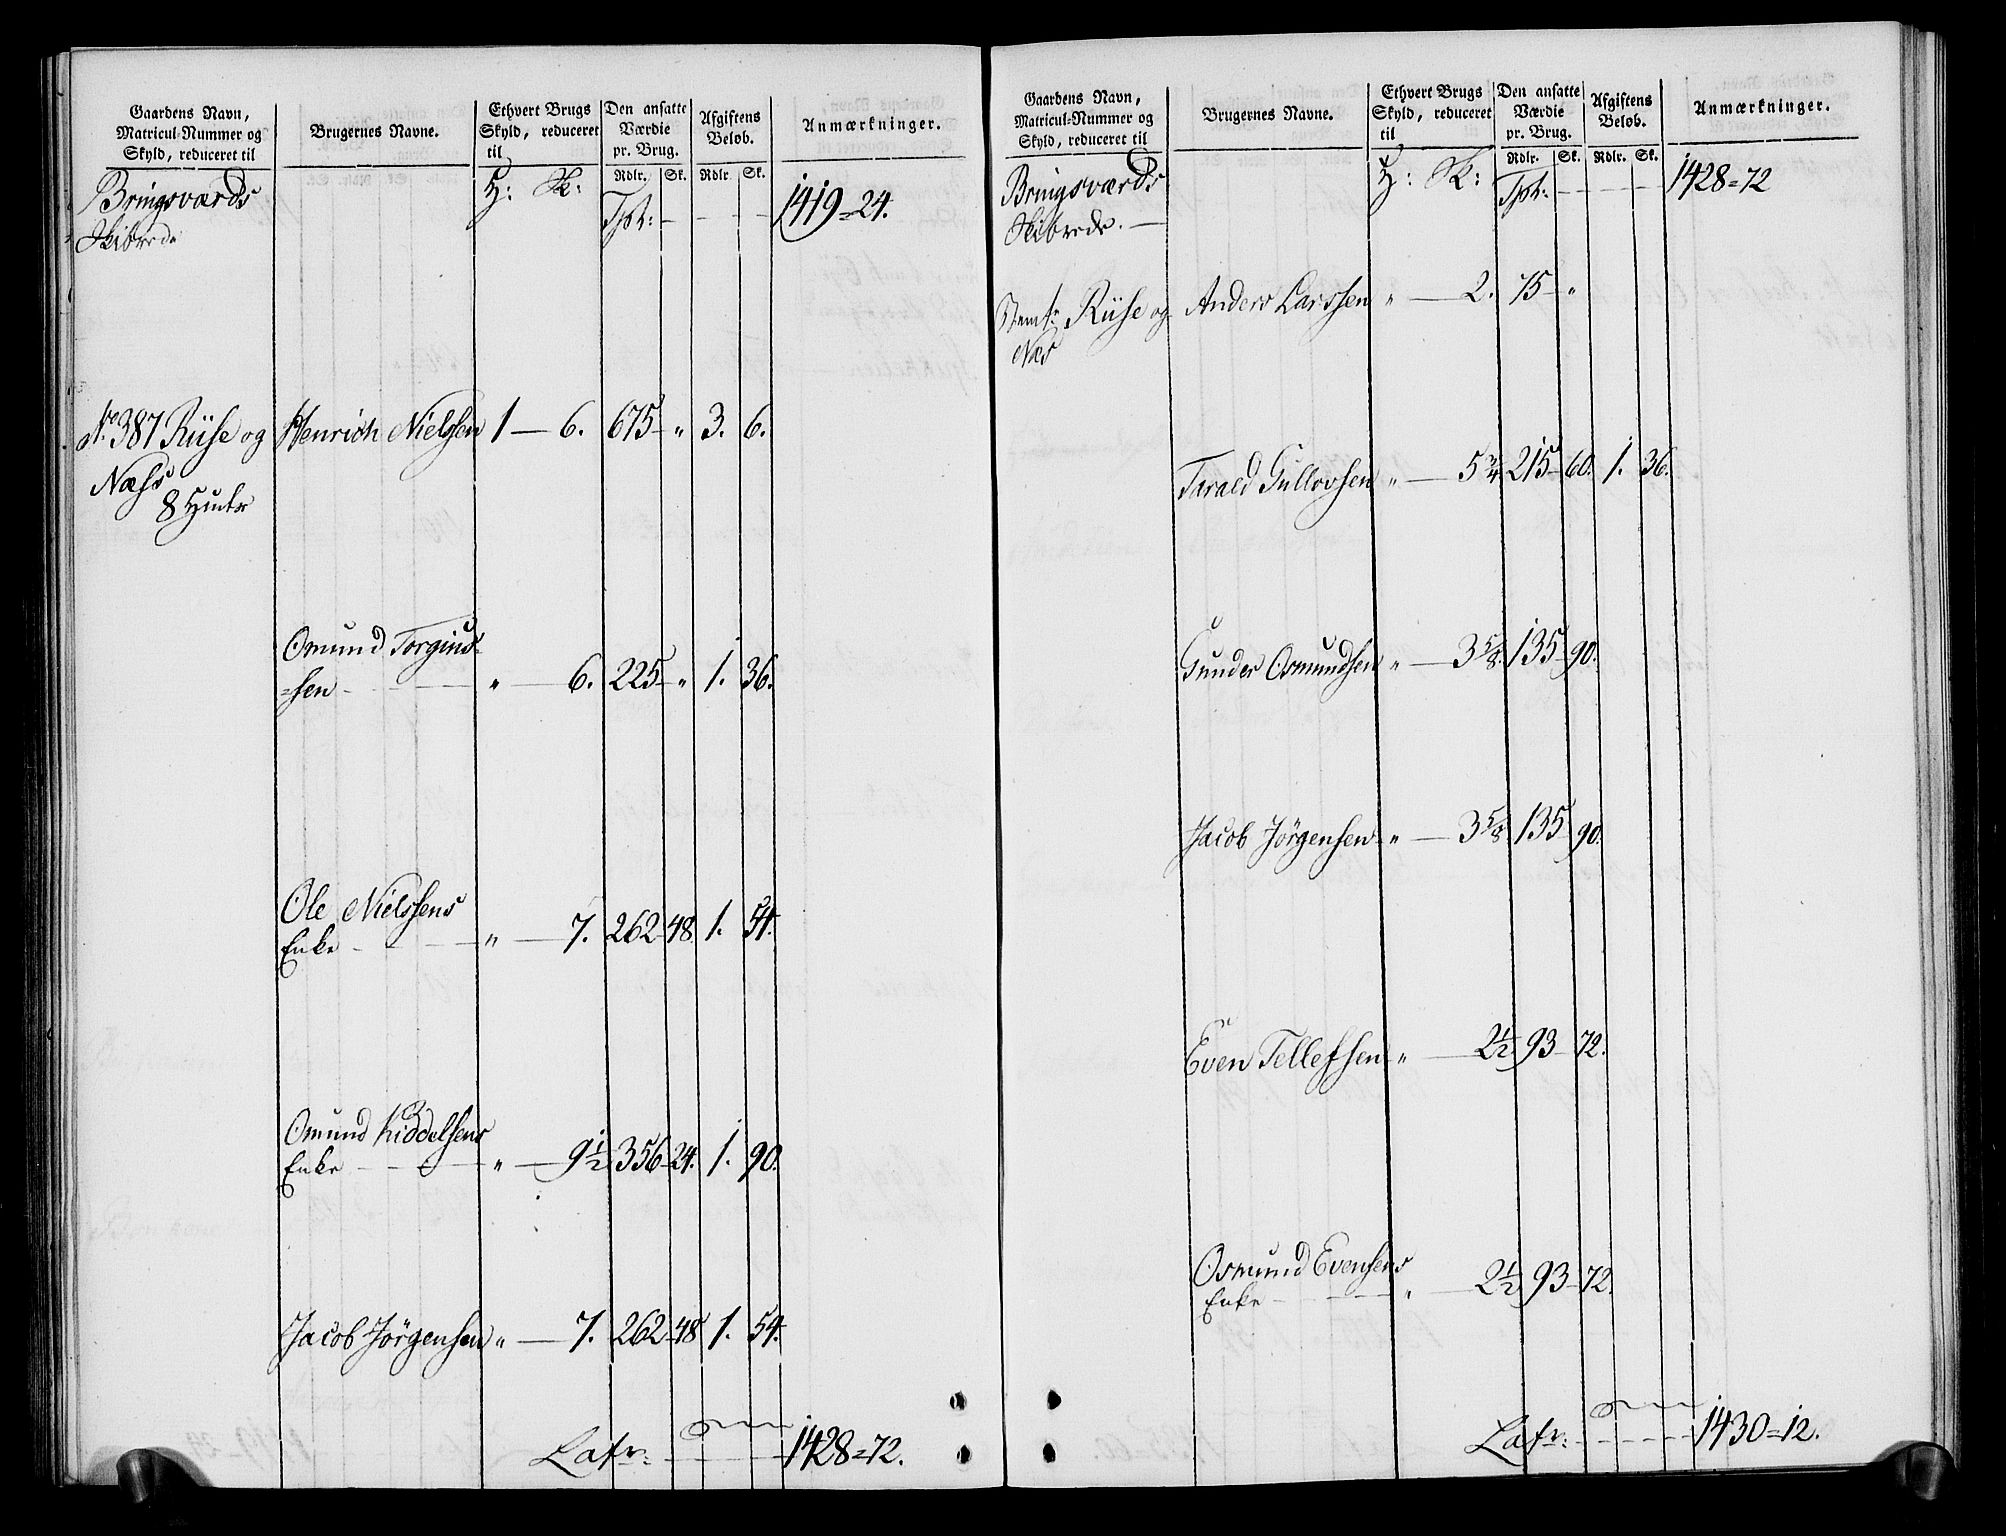 Gaardens Navn,
Matricul-Nummer og
Skyld, reduceret til
Brugernes Navne.
Ethvert Brugs
Skyld, reduceret
til
Den ansatte
Værdie
pr. Brug.
Afgiftens
Beløb.
Anmærkninger.
Rdlr. Sk. Rdlr. Sk.
Bringsværds H: Sk: Tpt: 1419=24.
Skibrede
No 387 Riise og Henrich Nielssen 1 — 6. 675 — „ 3. 6.
Næss
8 Huder
Omund Torgius-
=sen „ — 6. 225 — „ 1. 36.
Ole Nielssens
Enke „ — 7. 262 — 48. 1. 54.
Omund Kiddelsens
Enke „ — 9½ 356 — 24. 1. 90.
Jacob Jörgensen „ — 7. 262 — 48 1. 54.
Lats: 1428=72.
Gaardens Navn,
Matricul-Nummer og
Skyld, reduceret til
Brugernes Navne.
Ethvert Brugs
Skyld, reduceret
til
Den ansatte
Værdie
pr. Brug.
Afgiftens
Beløb.
Anmærkninger.
Rdlr. Sk. Rdlr. Sk.
Bringsværds H: Sk: Tpt: 1428=72
Skibrede. —
Riise og Anders Larssen „ — 2. 75 — „
Næs
Tarald Gullovsen „ — 5¾ 215 — 60. 1. 36.
Gunder Osmundsen „ — 3⅝. 135 — 90.
Jacob Jörgensen „ — 3⅝ 135 90.
Even Tellefsen „ — 2½. 93 — 72.
Osmund Evensens
Enke „ — 2½ 93 — 72.
Lats: 1430=12.